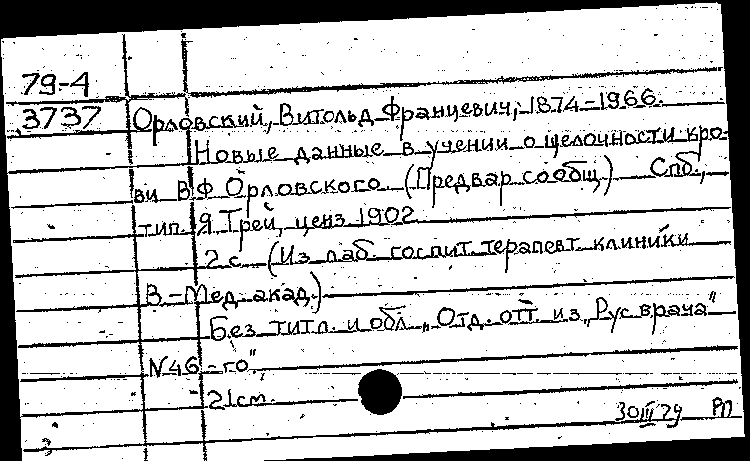 79-4
3737 Орловский, Витольд Францевич, 1874-1966.
Новые данные в учении о щелочности кро-
ви В Ф Орловского. (Предвар сообщ.) Спб.,
тип. Я Трей, ценз. 1902
2 с. (Из лаб. госпит. терапевт. клиники
В.-Мед. акад.)
Без титл. и обл. „Отд. отт. из „Рус врача"
N46-го".
21см.
30III79 РП
3